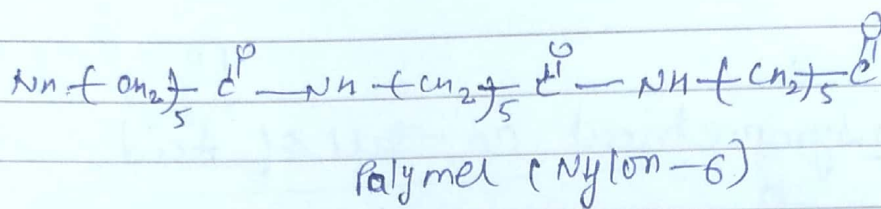 NH-(CH₂)₅-C(=O)-NH-(CH₂)₅-C(=O)-NH-(CH₂)₅-C(=O)
Polymer (Nylon-6)